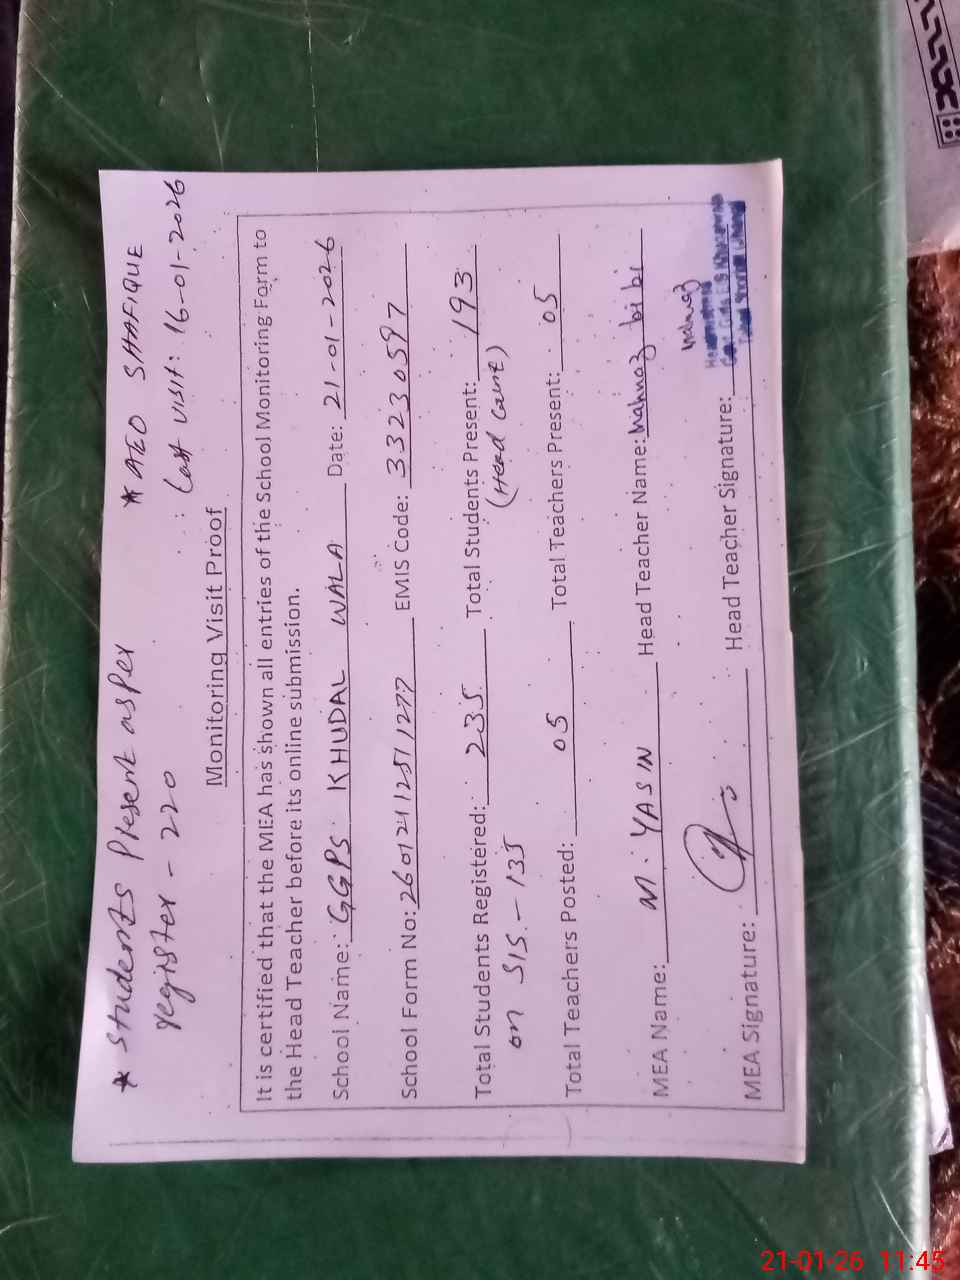 * Students Present as per
register - 220
* AEO SHAFIQUE
: Last visit: 16-01-2026
Monitoring Visit Proof
It is certified that the MEA has shown all entries of the School Monitoring Form to
the Head Teacher before its online submission.
School Name: GGPS KHUDAL WALA Date: 21-01-2026
School Form No: 26012112511277 EMIS Code: 33230597
Total Students Registered: 235 Total Students Present: 193
on SIS - 135 (Head Count)
Total Teachers Posted: 05 Total Teachers Present: 05
MEA Name: M. YASIN Head Teacher Name: Mahnaz bibi
MEA Signature: Head Teacher Signature: Mahnaz
21-01-26 11:45